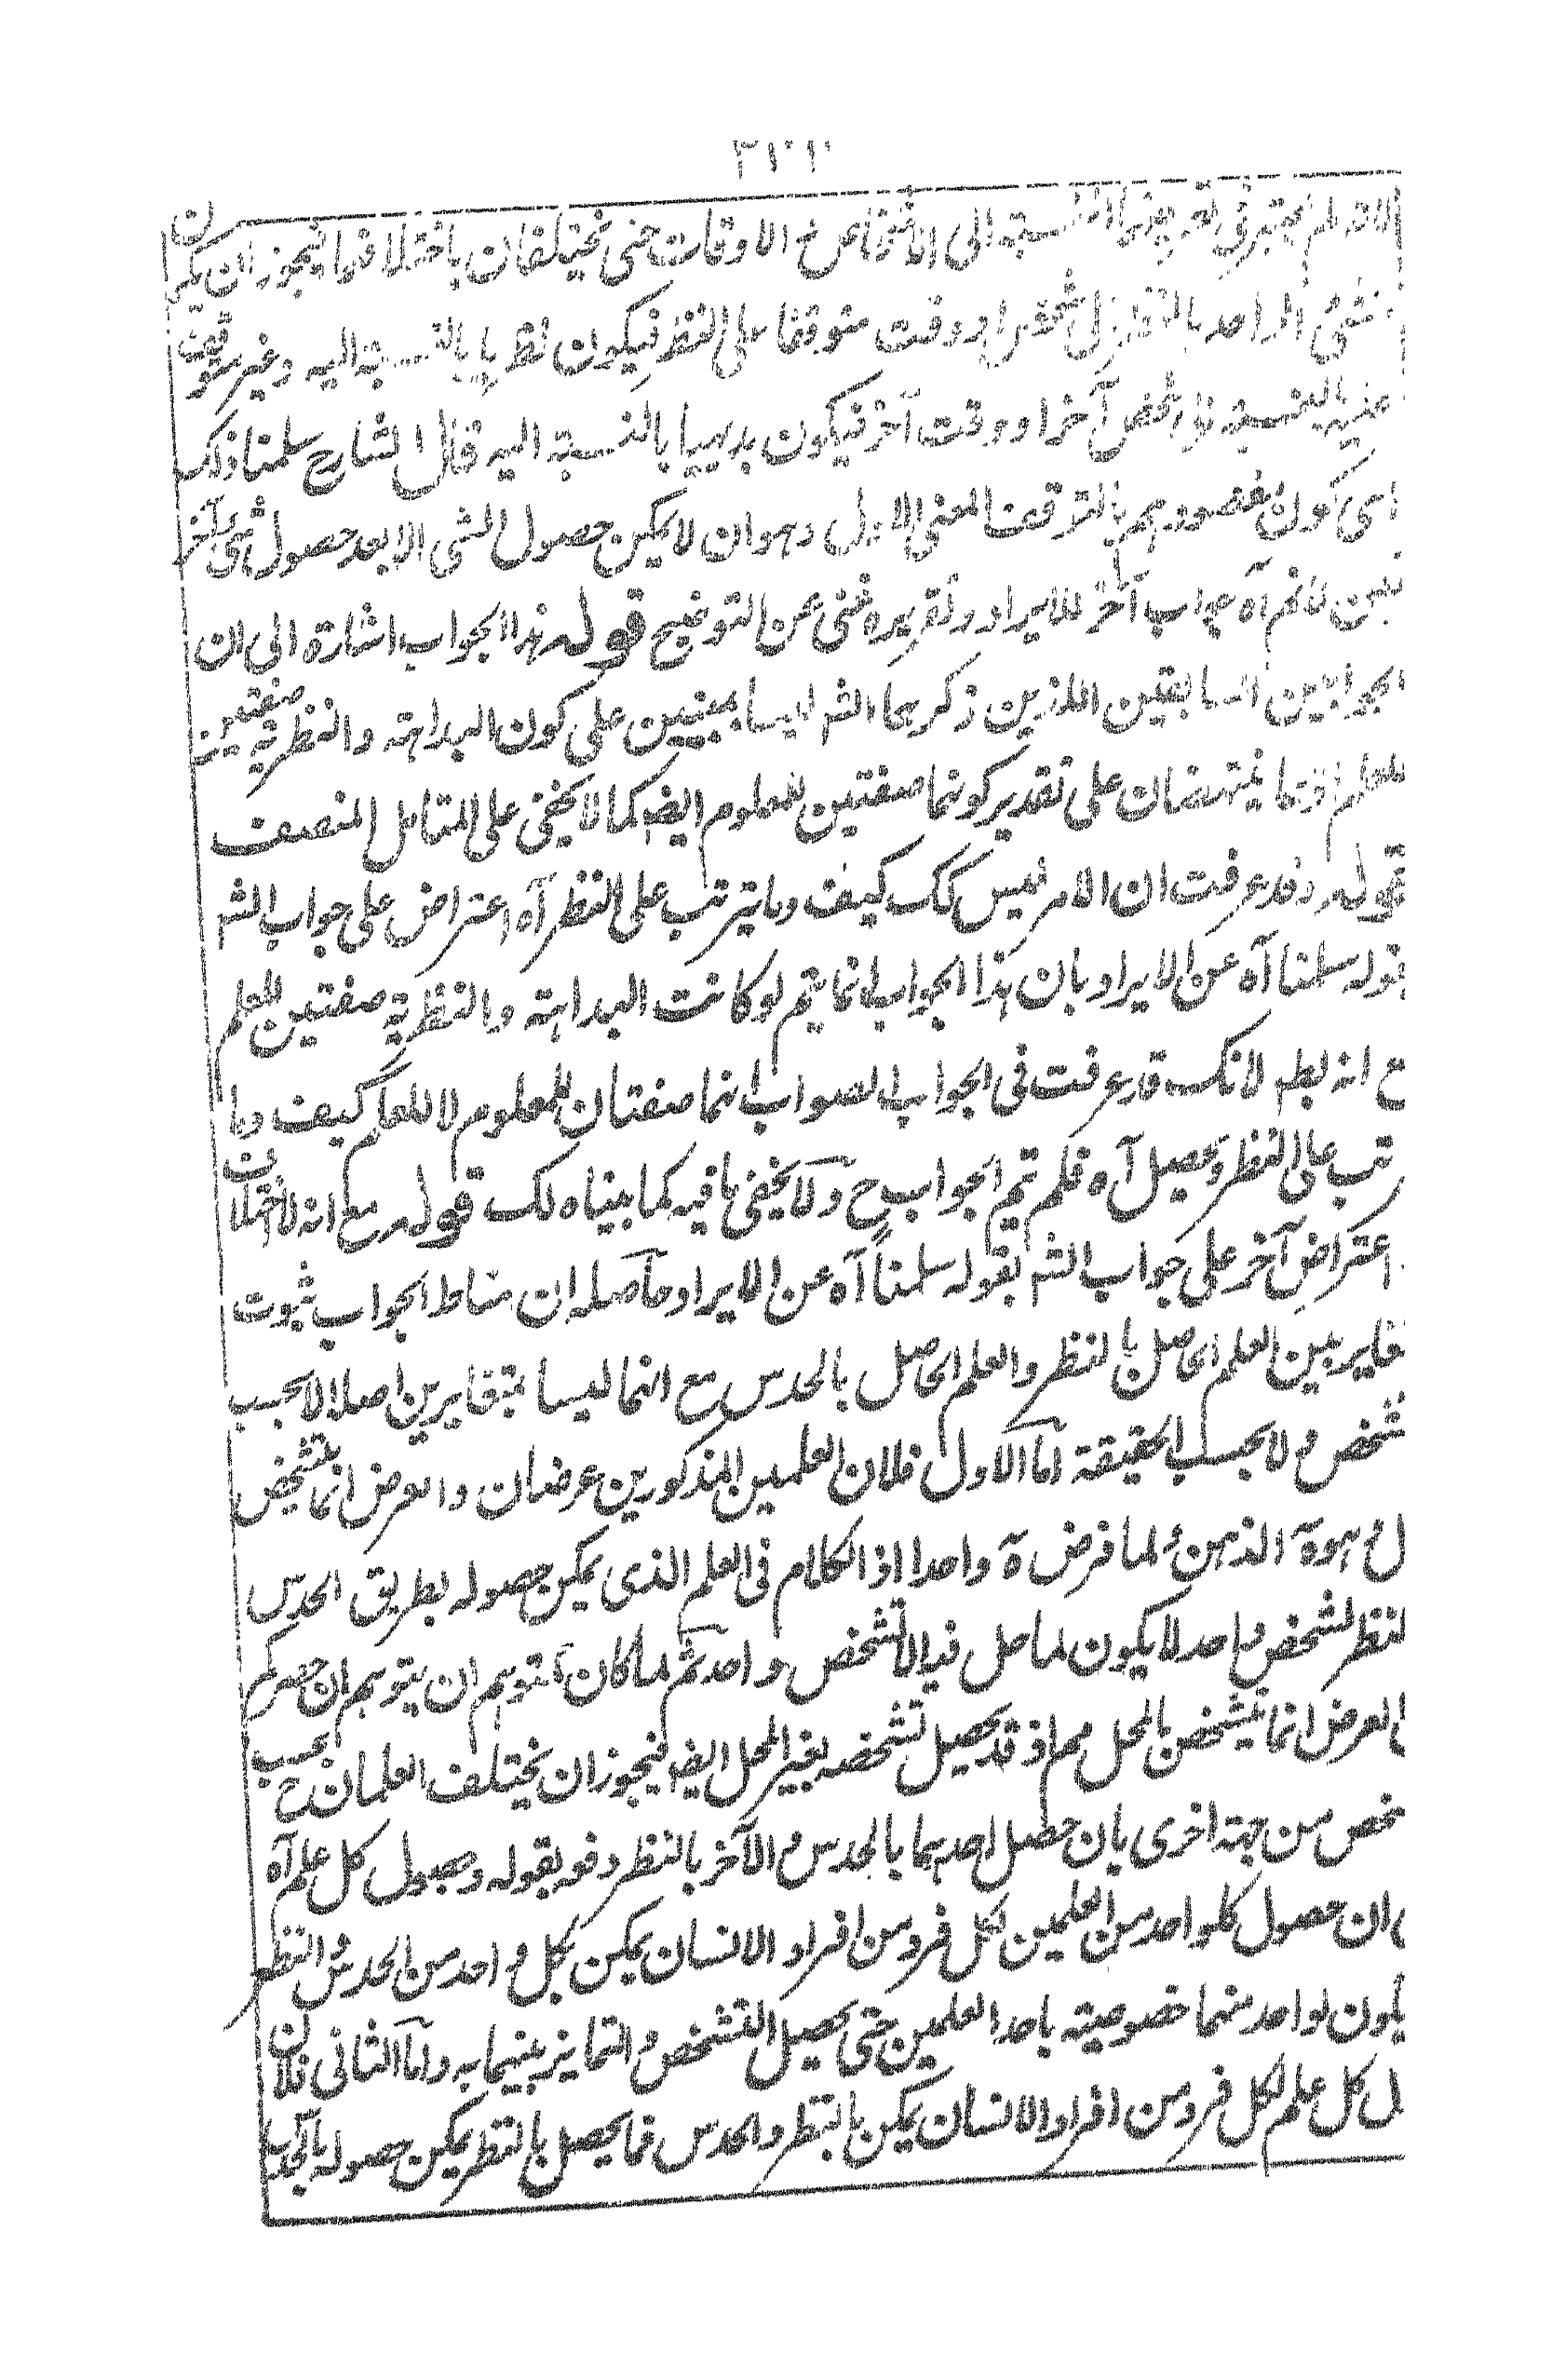 لم يعتبر في الى الاشخاص او الاوقات حتى يختلفان باختلافها فيجوز ان يكون
الشئ الواحد بالنسبة الى شخص او وقت متوقفا على النظر فيكون نظريا بالنسبة اليه وغير متوقف
عليه بالنسبة الى شخص آخر او وقت آخر فيكون بديهيا بالنسبة اليه قال الشارح سلمنا ذلك
اى كون مقصودهم بالتوقف المعنى الاول وهو ان لا يمكن حصول الشى الا بعد حصول شئ آخر
لكن لا نم آه جواب آخر للايراد وتقريره غنى عن التوضيح قوله هذا الجواب اشارة الى ان
الجوابين السابقين اللذين ذكرهما الشہ ليسا بمبنيين على كون البداهة والنظرية صفتين
للعلم اذ هما ينتهضان على تقدير كونهما صفتين للمعلوم ايضہ كما لا يخفى على المتامل المنصف
قوله وقد عرفت ان الامر ليس كك كيف وما يترتب على النظر آه اعتراض على جواب الشہ
بقوله سلمنا آه عن الايراد بان هذا الجواب انما يتم لو كانت البداهة والنظرية صفتين للعلم
مع انه بطہ لانك قد عرفت فى الجواب الصواب انهما صفتان للمعلوم لا للعلم كيف وما
رتب على النظر ويحصل آه فلم يتم الجواب ح ولا يخفى ما فيه كما بيناه لك قوله مع انه لا اختلاف
اعتراض آخر على جواب الشہ بقوله سلمنا آه عن الايراد حاصله ان مناط الجواب ثبوت
تغاير بين العلم الحاصل بالنظر والعلم الحاصل بالحدس مع انهما ليسا بمتغايرين اصلا لا بحسب
شخص ولا بحسب الحقيقة اما الاول فلان العلمين المذكورين عرضان والعرض انما يتشخص
ل وهو الذهن ولما فرض ة واحدا اذ الكلام فى العلم الذى يمكن حصوله بطريق الحدس
لنظر لشخص واحد لا يكون لما حل فيه الا تشخص واحد ثم لما كان لمتوهم ان يتوهم ان حصركم
العرض انما يتشخص بالمحل مم اذ قد يحصل تشخصه بغير المحل ايضہ فيجوز ان يختلف العلمان ح بحسب
شخص من جهة اخرى بان حصل احدهما بالحدس والآخر بالنظر دفعه بقوله وحصول كل علم آه
ى ان حصول كل واحد من العلمين لكل فرد من افراد الانسان يمكن بكل واحد من الحدس والنظر
يكون لواحد منهما خصوصية باحد العلمين حتى يحصل التشخص والتمايز بينهما به واما الثانى فلان
ل كل علم لكل فرد من افراد الانسان يمكن بالنظر والحدس فما يحصل بالنظر يمكن حصوله بالحدس